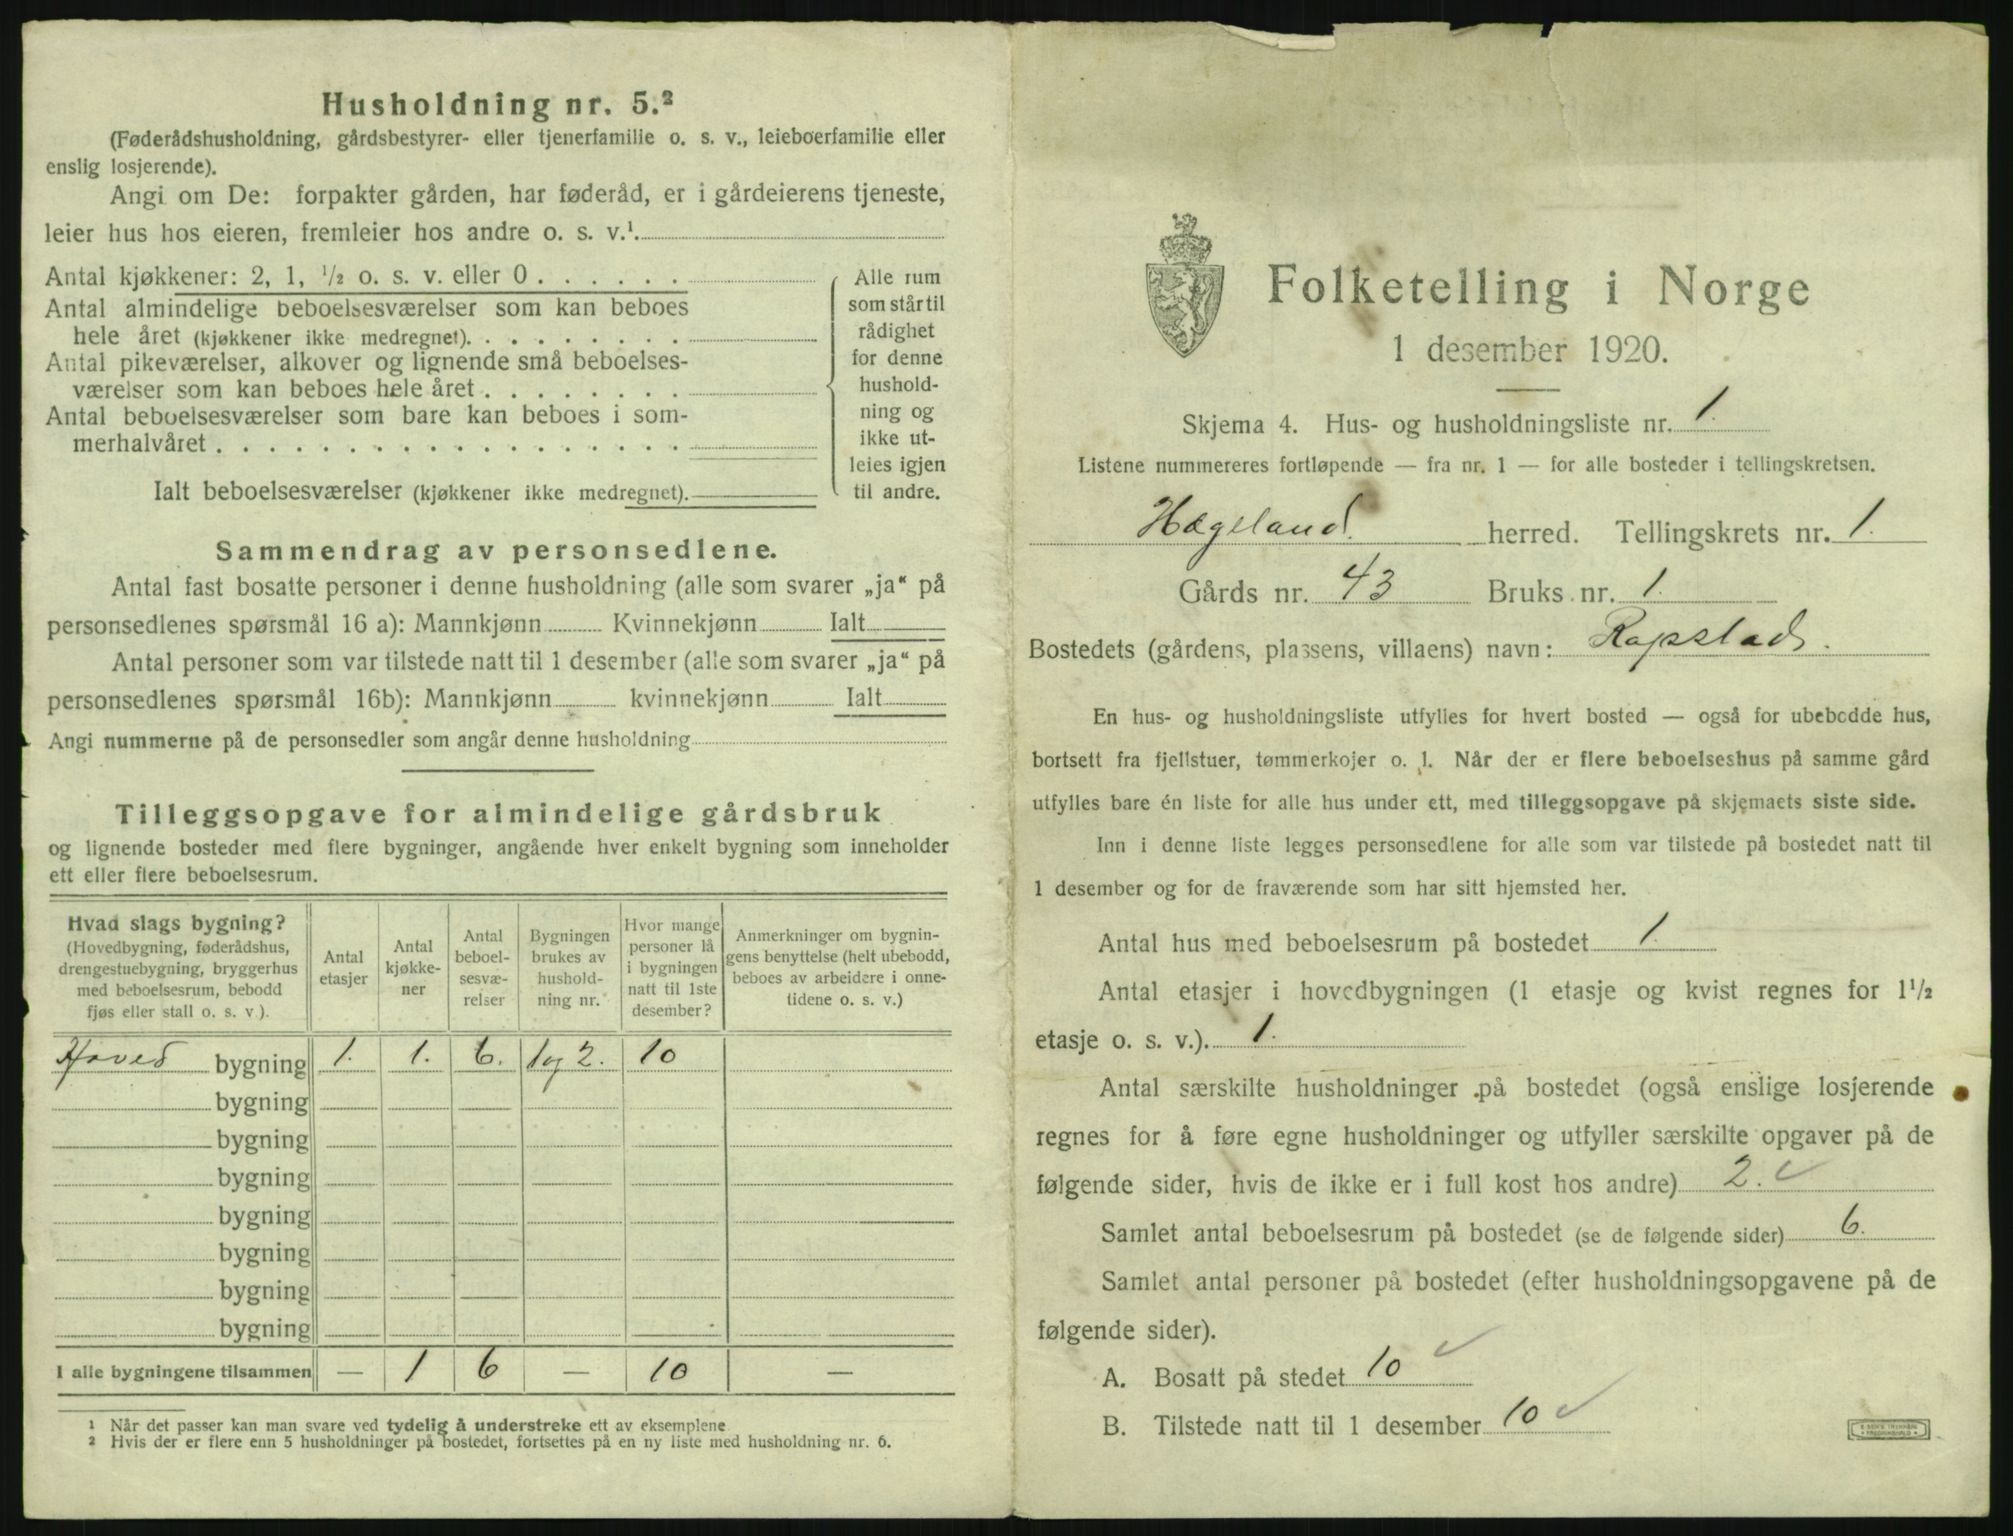 Husholdning nr. 5.²
(Føderådshusholdning, gårdsbestyrer- eller tjenerfamilie o. s. v., leieboerfamilie eller
enslig losjerende).
Angi om De: forpakter gården, har føderåd, er i gårdeierens tjeneste,
leier hus hos eieren, fremleier hos andre o. s. v.¹.
Antal kjøkkener: 2, 1, ½ o. s. v. eller 0 . . . . . .
Antal almindelige beboelsesværelser som kan beboes
hele året (kjøkkener ikke medregnet). . . . . . . . .
Antal pikeværelser, alkover og lignende små beboelses-
værelser som kan beboes hele året . . . . . . . .
Antal beboelsesværelser som bare kan beboes i som-
merhalvåret . . . . . . . . . . . . . . . . . .
Ialt beboelsesværelser (kjøkkener ikke medregnet).
Alle rum
som står til
rådighet
for denne
hushold-
ning og
ikke ut-
leies igjen
til andre.
Sammendrag av personsedlene.
Antal fast bosatte personer i denne husholdning (alle som svarer „ja“ på
personsedlenes spørsmål 16 a): Mannkjønn Kvinnekjønn Ialt
Antal personer som var tilstede natt til 1 desember (alle som svarer „ja“ på
personsedlenes spørsmål 16b): Mannkjønn kvinnekjønn Ialt
Angi nummerne på de personsedler som angår denne husholdning
Tilleggsopgave for almindelige gårdsbruk
og lignende bosteder med flere bygninger, angående hver enkelt bygning som inneholder
ett eller flere beboelsesrum.
Hvad slags bygning?
(Hovedbygning, føderådshus,
drengestuebygning, bryggerhus
med beboelsesrum, bebodd
fjøs eller stall o. s. v.).
Antal
etasjer
Antal
kjøkke-
ner
Antal
beboel-
sesvæ-
relser
Bygningen
brukes av
hushold-
ning nr.
Hvor mange
personer lå
i bygningen
natt til 1ste
desember?
Anmerkninger om bygnin-
gens benyttelse (helt ubebodd,
beboes av arbeidere i onne-
tidene o. s. v.)
Hoved bygning 1. 1. 6. 1 og 2. 10
bygning
bygning
bygning
bygning
bygning
bygning
bygning
I alle bygningene tilsammen — 1 6 — 10 —
¹ Når det passer kan man svare ved tydelig å understreke ett av eksemplene
² Hvis der er flere enn 5 husholdninger på bostedet, fortsettes på en ny liste med husholdning nr. 6.
Folketelling i Norge
1 desember 1920.
Skjema 4. Hus- og husholdningsliste nr. 1.
Listene nummereres fortløpende — fra nr. 1 — for alle bosteder i tellingskretsen.
Hægeland. herred. Tellingskrets nr. 1.
Gårds nr. 43 Bruks nr. 1.
Bostedets (gårdens, plassens, villaens) navn: Rapstad.
En hus- og husholdningsliste utfylles for hvert bosted — også for ubebodde hus,
bortsett fra fjellstuer, tømmerkojer o. l. Når der er flere beboelseshus på samme gård
utfylles bare én liste for alle hus under ett, med tilleggsopgave på skjemaets siste side.
Inn i denne liste legges personsedlene for alle som var tilstede på bostedet natt til
1 desember og for de fraværende som har sitt hjemsted her.
Antal hus med beboelsesrum på bostedet 1.
Antal etasjer i hovedbygningen (1 etasje og kvist regnes for 1½
etasje o. s. v.). 1.
Antal særskilte husholdninger på bostedet (også enslige losjerende
regnes for å føre egne husholdninger og utfyller særskilte opgaver på de
følgende sider, hvis de ikke er i full kost hos andre) 2. ✓
Samlet antal beboelsesrum på bostedet (se de følgende sider) 6.
Samlet antal personer på bostedet (efter husholdningsopgavene på de
følgende sider).
A. Bosatt på stedet 10 ✓
B. Tilstede natt til 1 desember 10 ✓